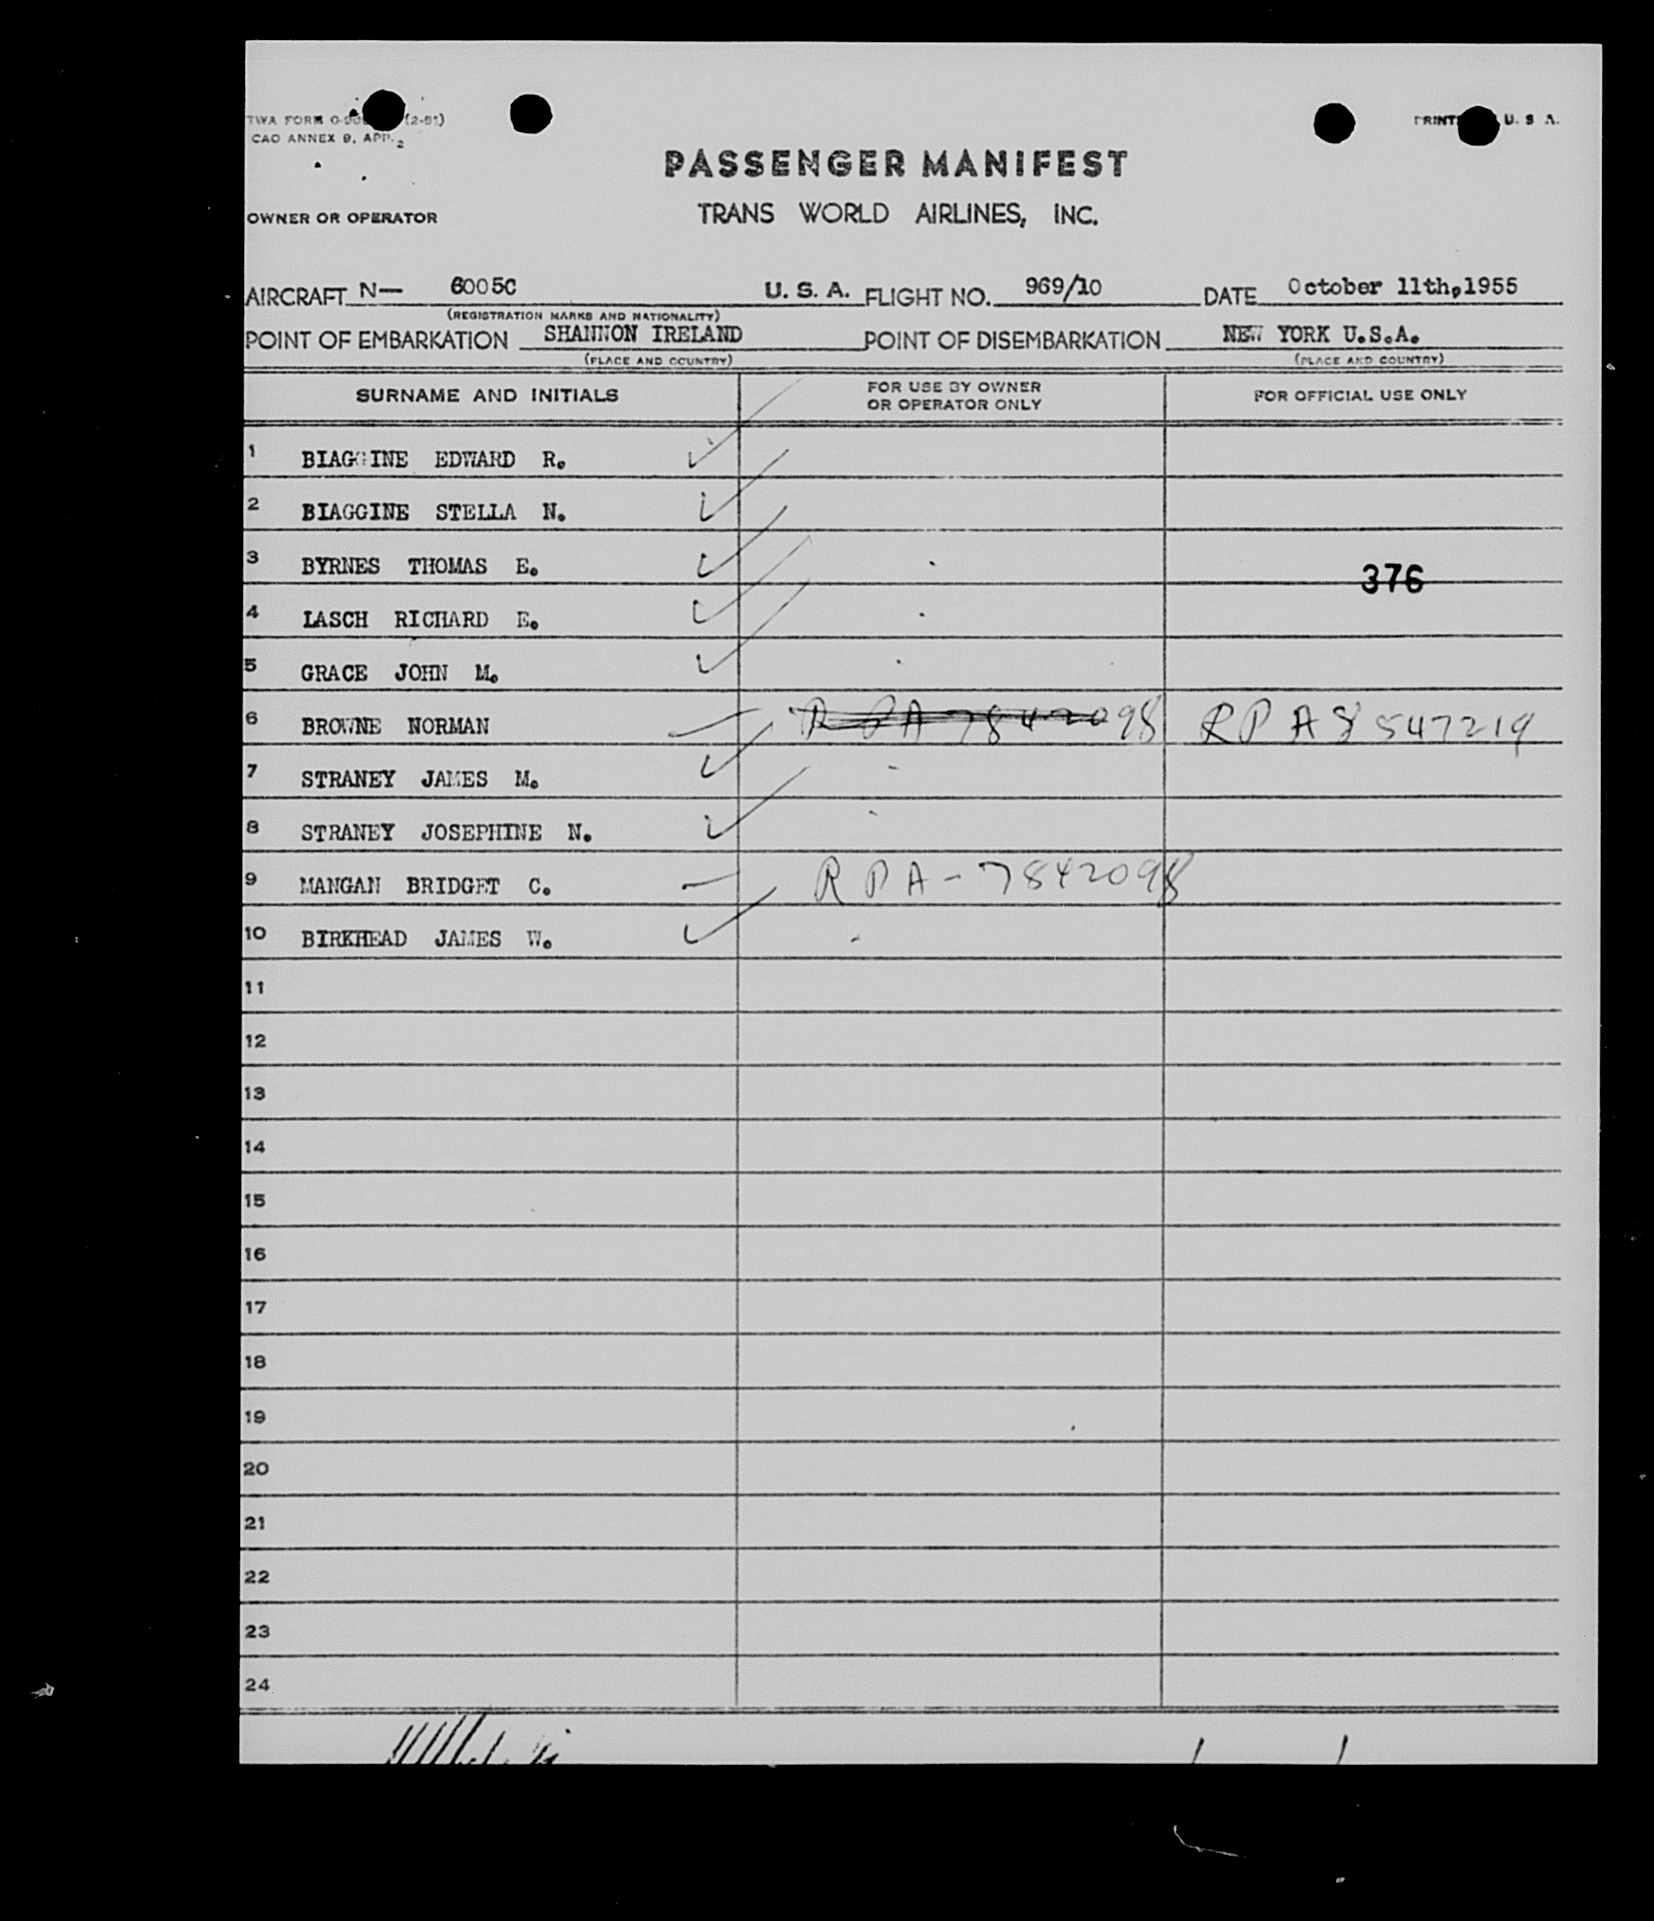 TWA FORM (2-51)
PRINT U. S. A.
CAO ANNEX 9, APP. 2
PASSENGER MANIFEST
OWNER OR OPERATOR TRANS WORLD AIRLINES, INC.
AIRCRAFT N— 6005C U. S. A. FLIGHT NO. 969/10 DATE October 11th,1955
(REGISTRATION MARKS AND NATIONALITY)
POINT OF EMBARKATION SHANNON IRELAND POINT OF DISEMBARKATION NEW YORK U.S.A.
(PLACE AND COUNTRY) (PLACE AND COUNTRY)
SURNAME AND INITIALS FOR USE BY OWNER OR OPERATOR ONLY FOR OFFICIAL USE ONLY
1 BIAGGINE EDWARD R.
2 BIAGGINE STELLA N.
3 BYRNES THOMAS E.
376
4 LASCH RICHARD E.
5 GRACE JOHN M.
6 BROWNE NORMAN RPA 7842098 RPA 8547219
7 STRANEY JAMES M.
8 STRANEY JOSEPHINE N.
9 MANGAN BRIDGET C. RPA-7842098
10 BIRKHEAD JAMES W.
11
12
13
14
15
16
17
18
19
20
21
22
23
24